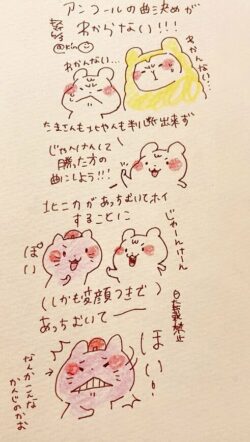 アンコールの曲決めが
わからない!!!
わかんない…
わかんない…
たまさんも北やんも判断出来ず
じゃんけんして
勝った方の
曲にしよう!!!
北ニカがあっちむいてホイ
することに
じゃーんけーん
ぽい
(しかも変顔つきで)
あっちむいてーー
ほい!
なんかこんな
かんじのかお